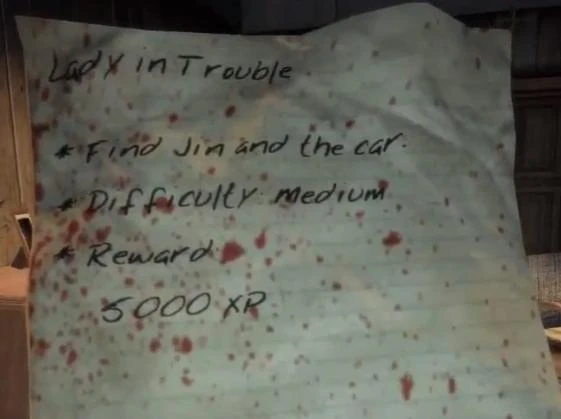 Lady in Trouble
* Find Jin and the car.
* Difficulty: medium
* Reward
5000 XP